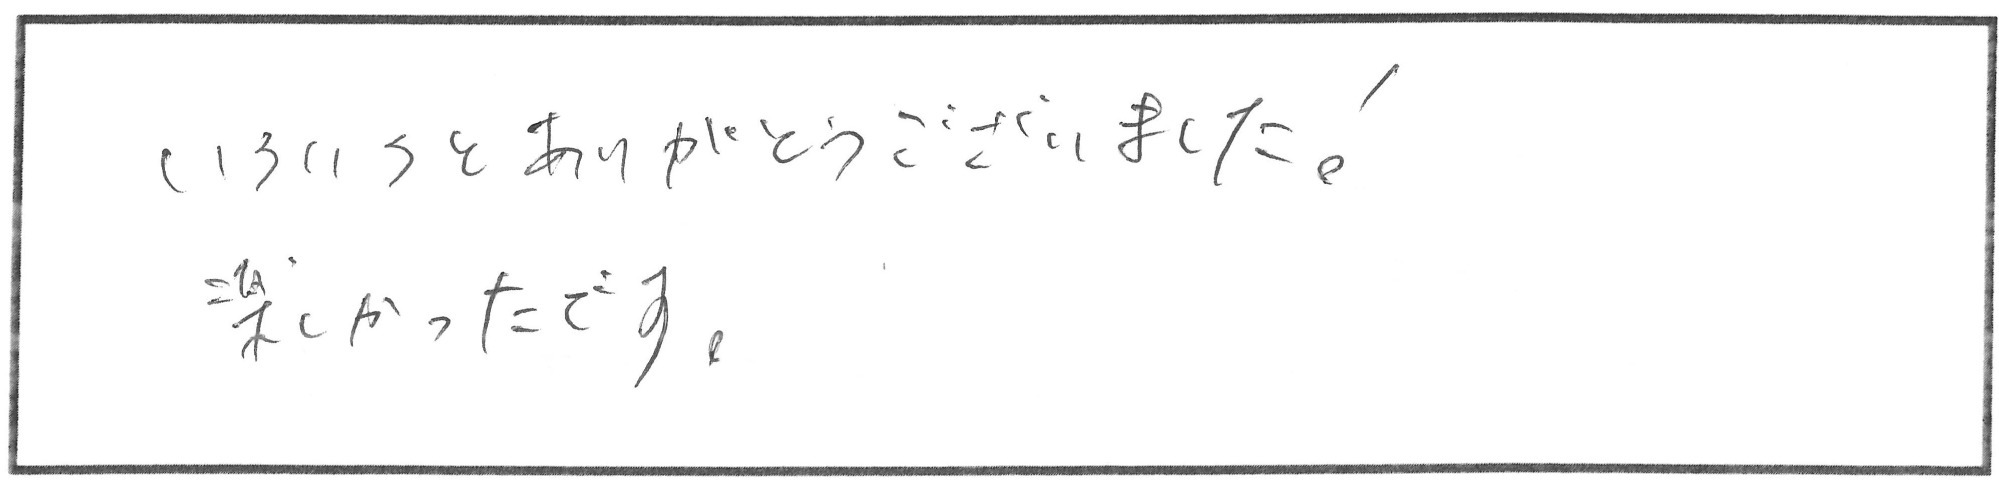 いろいろとありがとうございました!
楽しかったです。